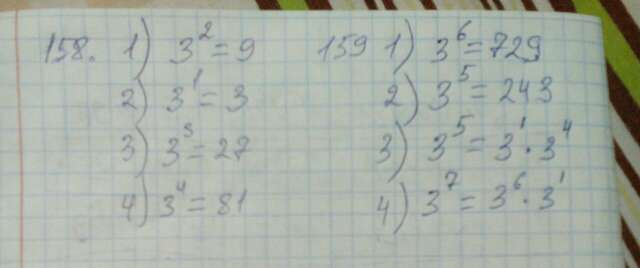 158. 1) 3² = 9
2) 3¹ = 3
3) 3³ = 27
4) 3⁴ = 81
159 1) 3⁶ = 729
2) 3⁵ = 243
3) 3⁵ = 3¹ · 3⁴
4) 3⁷ = 3⁶ · 3¹